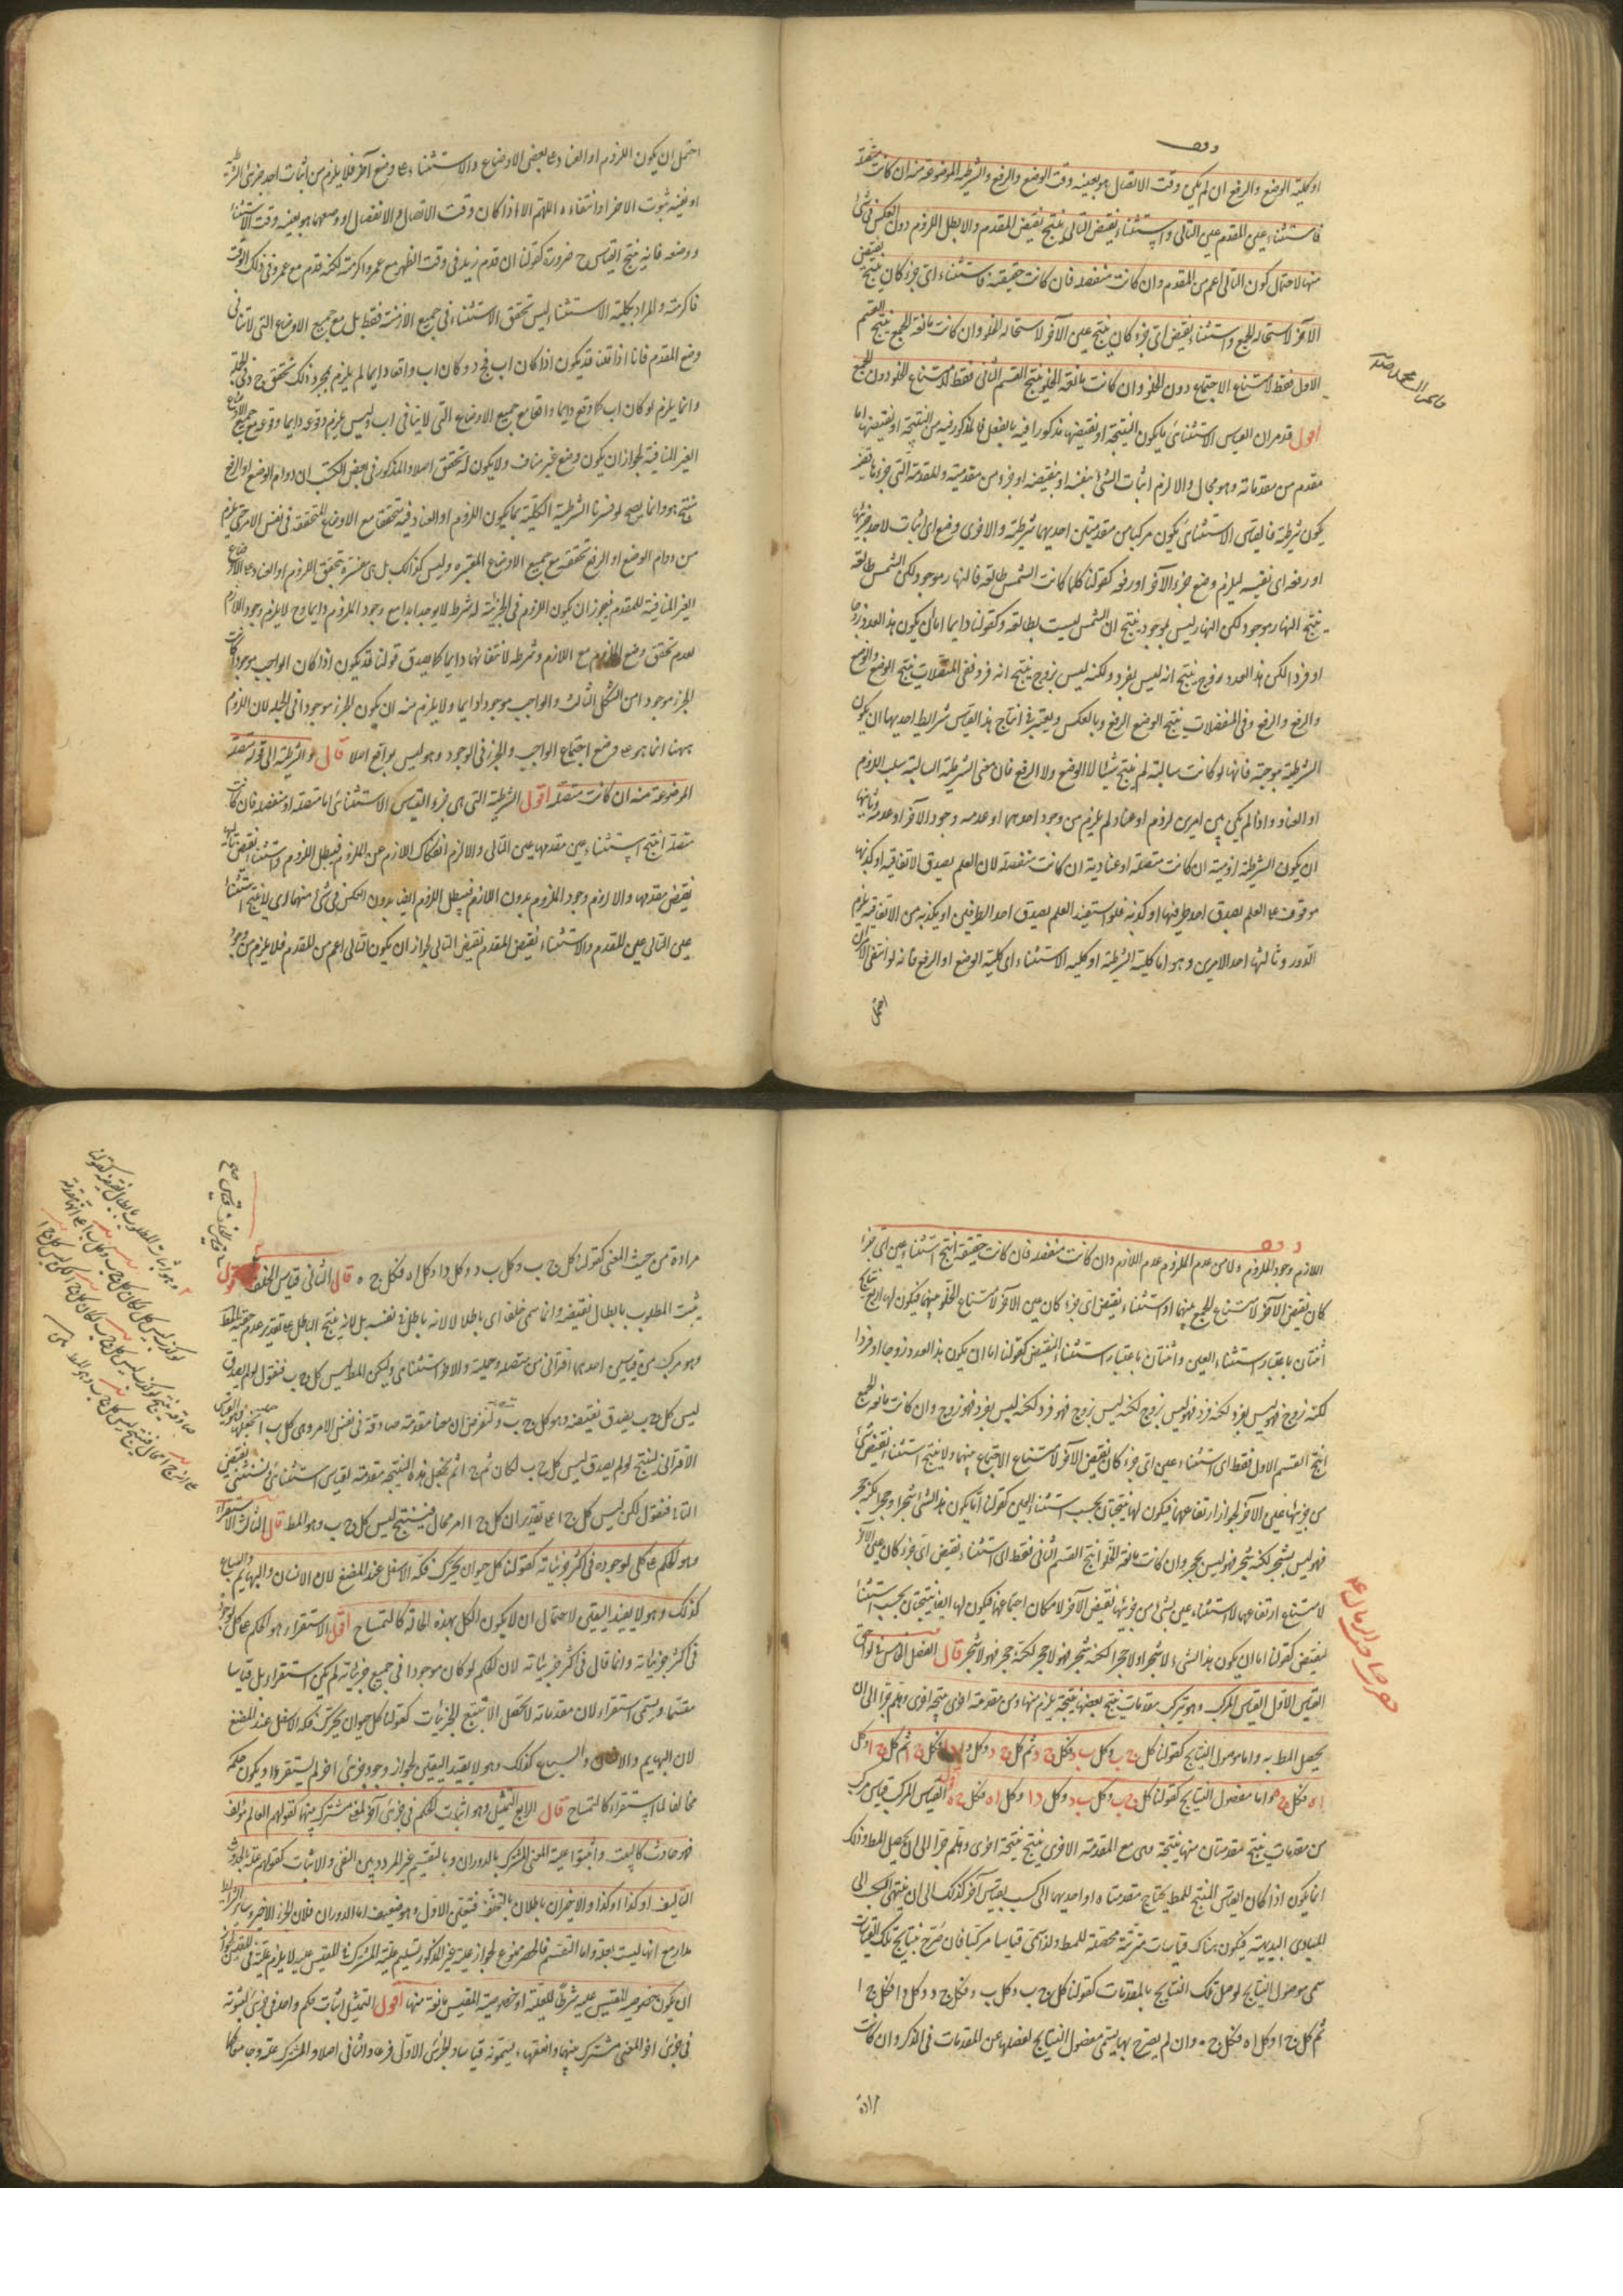 او كلية الوضع والرفع ان لم يكن وقت الاتصال هو بعينه وقت الوضع والرفع والشرطية الموضوعة فيه ان كانت متصلة
فاستثناء عين المقدم عين التالى واستثناء نقيض التالى ينتج نقيض المقدم والا بطل اللزوم دون العكس فى شئ
منهما لاحتمال كون التالى اعم من المقدم وان كانت منفصلة فان كانت حقيقية فاستثناء اى جزء كان ينتج نقيض
الآخر لاستحالة الجمع واستثناء نقيض اى جزء كان ينتج عين الآخر لاستحالة الخلو وان كانت مانعة الجمع ينتج القسم
الاول فقط لامتناع الاجتماع دون الخلو وان كانت مانعة الخلو ينتج القسم الثانى فقط لامتناع الخلو دون الجمع
اقول قد مر ان القياس الاستثنائى ما يكون النتيجة او نقيضها مذكورا فيه بالفعل فالمذكور فيه من النتيجة او نقيضها اما
مقدم من مقدماته وهو محال والا لزم اثبات الشئ بنفسه او بنقيضه او جزء من مقدمته والمقدمة التى جزءها قضية
يكون شرطية فالقياس الاستثنائى يكون مركبا من مقدمتين احديهما شرطية والاخرى وضع اى اثبات لاحد جزئيها
او رفعه اى نفيه ليلزم وضع جزء الآخر او رفعه كقولنا كلما كانت الشمس طالعة فالنهار موجود لكن الشمس طالعة
ينتج النهار موجود لكن النهار ليس بموجود ينتج ان الشمس ليست بطالعة وكقولنا دايما اما ان يكون هذا العدد زوجا
او فردا لكن هذا العدد زوج ينتج انه ليس بفرد ولكنه ليس بزوج ينتج انه فرد ففى المتصلات ينتج الوضع والوضع
والرفع والرفع وفى المنفصلات ينتج الوضع الرفع وبالعكس ويعتبر فى انتاج هذا القياس شرايط احديها ان يكون
الشرطية موجبة فانها لو كانت سالبة لم ينتج شيئا لا الوضع ولا الرفع فان معنى الشرطية السالبة سلب اللزوم
او العناد واذا لم يكن بين امرين لزوم او عناد لم يلزم من وجود احدهما او عدمه وجود الآخر او عدمه وثانيها
ان يكون الشرطية لزومية ان كانت متصلة او عنادية ان كانت منفصلة لان العلم بصدق الاتفاقية او كذبها
موقوف على العلم بصدق احد طرفيها او كذبه فلو استفيد العلم بصدق احد الطرفين او بكذبه من الاتفاقية يلزم
الدور وثالثها احد الامرين وهو اما كلية الشرطية او كلية الاستثناء اى كلية الوضع او الرفع فانه لو انتفى الامران
احتمل
احتمل ان يكون اللزوم او العناد على بعض الاوضاع والاستثناء على وضع آخر فلا يلزم من اثبات احد جزئى الشرطية
او نفيه ثبوت الاخر او انتفاءه اللهم الا اذا كان وقت الاتصال والانفصال ووضعهما هو بعينه وقت الاستثناء
ووضعه فانه ينتج القياس ح ضرورة كقولنا ان قدم زيد فى وقت الظهر مع عمرو اكرمته لكنه قدم مع عمرو فى ذلك الوقت
فاكرمته والمراد بكلية الاستثناء ليس تحقق الاستثناء فى جميع الازمنة فقط بل مع جميع الاوضاع التى لا تنافى
وضع المقدم فانا اذا قلنا قد يكون اذا كان اب فج د وكان اب واقعا دايما لم يلزم بمجرد ذلك تحقق ج د فى الجملة
وانما يلزم لو كان اب كما وقع دايما واقعا مع جميع الاوضاع التى لا ينافى اب وليس يلزم من وقوعه دايما وقوعه مع جميع الاوضاع
الغير المنافية لجواز ان يكون وضع غير مناف ولا يكون له تحقق اصلا والمذكور فى بعض الكتب ان دوام الوضع او الرفع
منتج وهو انما يصح لو فسرنا الشرطية الكلية بما يكون اللزوم او العناد فيه متحققا مع الاوضاع المتحققة فى نفس الامر حتى يلزم
من دوام الوضع او الرفع تحققه مع جميع الاوضاع المعتبرة وليس كذلك بل هى مفسرة بتحقق اللزوم او العناد على الاوضاع
الغير المنافية للمقدم فيجوز ان يكون اللزوم فى الجزئية له شرط لا يوجد ابدا مع وجود الملزوم دايما وح لا يلزم وجود اللازم
لعدم تحقق وضع الملزوم مع اللازم وشرطه لانتفائهما دايما كما يصدق قولنا قد يكون اذا كان الواجب موجودا كانت
الجزء موجودا من الشكل الثالث والواجب موجود دايما ولا يلزم منه ان يكون الجزء موجودا فى الجملة لان اللزوم
ههنا انما هو على وضع اجتماع الواجب والجزء فى الوجود وهو ليس بواقع اصلا قال والشرطية الى قوله متصلة
الموضوعة منه ان كانت متصلة اقول الشرطية التى هى جزء القياس الاستثنائى اما متصلة او منفصلة فان كانت
متصلة انتج استثناء عين مقدمها عين التالى والا لزم انفكاك اللازم عن الملزوم فيبطل اللزوم واستثناء نقيض تاليها
نقيض مقدمها والا لزم وجود الملزوم بدون اللازم فيبطل اللزوم ايضا بدون العكس فى شئ منهما اى لا ينتج استثناء
عين التالى عين المقدم والاستثناء نقيض المقدم نقيض التالى لجواز ان يكون التالى اعم من المقدم فلا يلزم من وجود
اللازم وجود الملزوم ولا من عدم الملزوم عدم اللازم وان كانت منفصلة فان كانت حقيقية انتج استثناء عين اى جزء
كان نقيض الآخر لامتناع الجمع بينهما واستثناء نقيض اى جزء كان عين الآخر لامتناع الخلو عنهما فيكون لها اربع نتايج
اثنتان باعتبار استثناء العين واثنتان باعتبار استثناء النقيض كقولنا اما ان يكون هذا العدد زوجا او فردا
لكنه زوج فهو ليس بفرد لكنه فرد فهو ليس بزوج لكنه ليس بزوج فهو فرد لكنه ليس بفرد فهو زوج وان كانت مانعة الجمع
انتج القسم الاول فقط اى استثناء عين اى جزء كان نقيض الآخر لامتناع الاجتماع بينهما ولا ينتج استثناء نقيض شئ
من جزئيها عين الآخر لجواز ارتفاعهما فيكون لها نتيجتان بحسب استثناء العين كقولنا اما ان يكون هذا الشئ شجرا او حجرا لكنه حجر
فهو ليس بشجر لكنه شجر فهو ليس بحجر وان كانت مانعة الخلو انتج القسم الثانى فقط اى استثناء نقيض اى جزء كان عين الآخر
لامتناع ارتفاعهما لا استثناء عين شئ من جزئيها نقيض الآخر لامكان اجتماعهما فيكون لها ايضا نتيجتان بحسب استثناء
النقيض كقولنا اما ان يكون هذا الشئ لا شجرا او لا حجرا لكنه شجر فهو لا حجر لكنه حجر فهو لا شجر قال الفصل الخامس فى لواحق
القياس الاول القياس المركب وهو تركب مقدمات ينتج بعضها نتيجة يلزم منها ومن مقدمة اخرى نتيجة اخرى وهلم جرا الى ان
يحصل المط به واما موصول النتايج كقولنا كل ج ب وكل ب د فكل ج د ثم كل ج د وكل د ا فكل ج ا ثم كل ج ا وكل
ا ه فكل ج ه واما مفصول النتايج كقولنا كل ج ب وكل ب د وكل د ا وكل ا ه فكل ج ه اقول القياس المركب قياس مركب
من مقدمات ينتج مقدمتان منها نتيجة وهى مع المقدمة الاخرى ينتج نتيجة اخرى وهلم جرا الى ان يحصل المط وذلك
انما يكون اذا كان القياس المنتج للمط يحتاج مقدمتاه او احديهما الى كسب بقياس آخر كذلك الى ان ينتهى الكسب الى
المبادى البديهية فيكون هناك قياسات مترتبة محصلة للمط ولذا سمى قياسا مركبا فان صرح بنتايج تلك القياسات
سمى موصول النتايج لوصل تلك النتايج بالمقدمات كقولنا كل ج ب وكل ب د فكل ج د وكل د ا فكل ج ا
ثم كل ج ا وكل ا ه فكل ج ه وان لم يصرح بها يسمى مفصول النتايج لفصلها عن المقدمات فى الذكر وان كانت
مرادة
مرادة من حيث المعنى كقولنا كل ج ب وكل ب د وكل د ا وكل ا ه فكل ج ه قال الثانى قياس الخلف
يثبت المطلوب بابطال نقيضه وانما سمى خلفا اى باطلا لا لانه باطل فى نفسه بل لانه ينتج الباطل على تقدير عدم حقية المط
وهو مركب من قياسين احدهما اقترانى من متصلة وحملية والاخر استثنائى وليكن المط ليس كل ج ب فنقول لو لم يصدق
ليس كل ج ب يصدق نقيضه وهو كل ج ب ولنفرض ان هنا مقدمة صادقة فى نفس الامر وهى كل ب ا
الاقترانى لينتج لو لم يصدق ليس كل ج ب لكان كل ج ا ثم نجعل هذه النتيجة مقدمة لقياس استثنائى فنستثنى نقيض
التالى فنقول لكن ليس كل ج ا على تقدير ان كل ج ا امر محال فينتج ليس كل ج ب وهو المط قال الثالث الاستقراء
وهو الحكم على كلى لوجوده فى اكثر جزئياته كقولنا كل حيوان يحرك فكه الاسفل عند المضغ لان الانسان والبهايم والسباع
كذلك وهو لا يفيد اليقين لاحتمال ان لا يكون الكل بهذه الحالة كالتمساح اقول الاستقراء هو الحكم على كلى لوجوده
فى اكثر جزئياته وانما قال فى اكثر جزئياته لان الحكم لو كان موجودا فى جميع جزئياته لم يكن استقراء بل قياسا
مقسما ويسمى استقراء لان مقدماته لا تحصل الا بتتبع الجزئيات كقولنا كل حيوان يحرك فكه الاسفل عند المضغ
لان البهايم والانسان والسباع كذلك وهو لا يفيد اليقين لجواز وجود جزئى اخر لم يستقرء ويكون حكمه
مخالفا لما استقرء كالتمساح قال الرابع التمثيل وهو اثبات الحكم فى جزئى آخر لمعنى مشترك بينهما كقولهم العالم مؤلف
فهو حادث كالبيت واثبتوا علية المعنى المشترك بالدوران وبالتقسيم غير المردد بين النفى والاثبات كقولهم علة الحدوث
التاليف او كذا او كذا والاخيران باطلان بالتخلف فتعين الاول وهو ضعيف اما الدوران فلان الجزء الاخير وساير الشرايط
مدار مع انها ليست بعلة واما التقسيم فالحصر ممنوع لجواز علية غير المذكور وبتسليم علية المشترك فى المقيس عليه لا يلزم عليته فى المقيس لجواز
ان يكون خصوصية المقيس عليه شرطا للعلية او خصوصية المقيس مانعة منها اقول التمثيل اثبات حكم واحد فى جزئى لثبوته
فى جزئى آخر لمعنى مشترك بينهما والفقهاء يسمونه قياسا والجزئى الاول فرعا والثانى اصلا والمشترك علة وجامعا كما